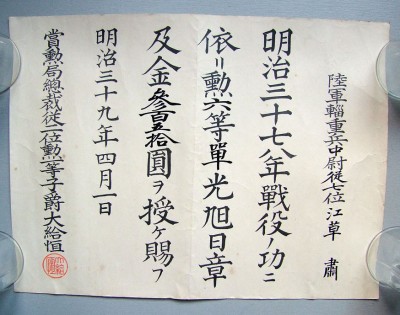 陸軍輜重兵中尉從七位江草肅
明治三十七八年戰役ノ功ニ
依リ勲六等單光旭日章
及金參百五拾圓ヲ授ケ賜フ
明治三十九年四月一日
賞勲局總裁從二位勲一等子爵大給恒